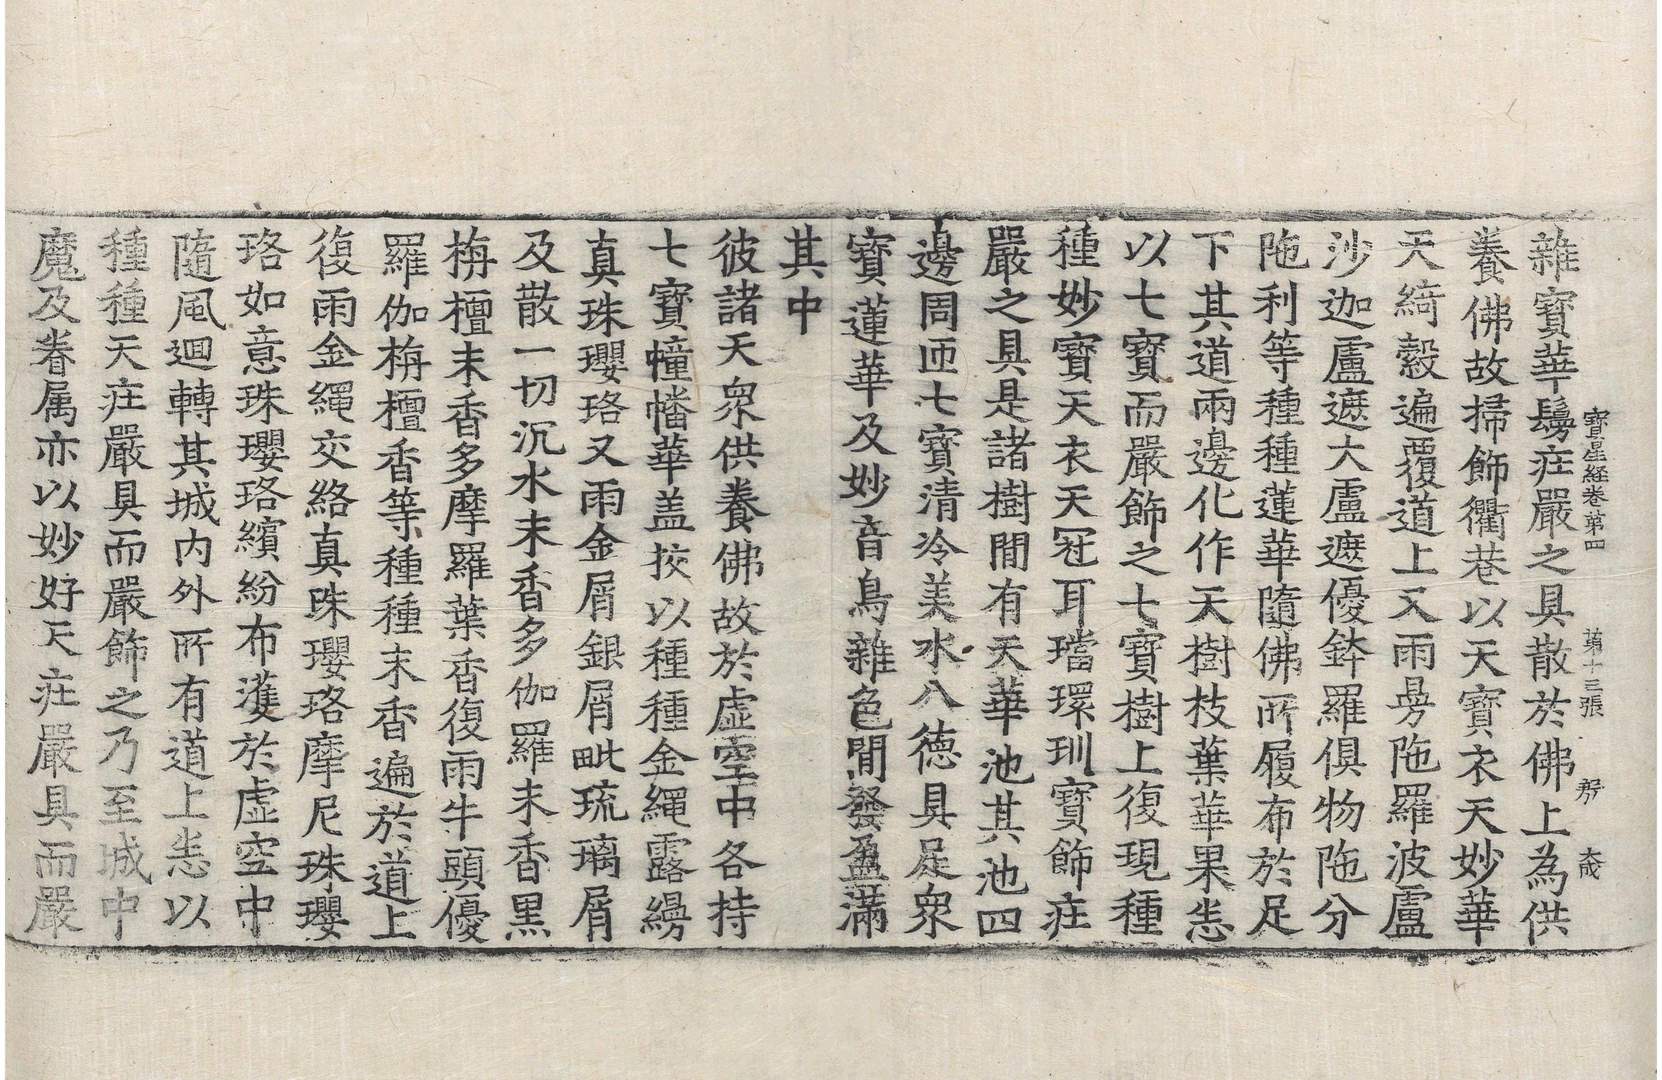 寶星経卷第四 第十三張 剏 大成
雜寶華鬘疘嚴之具散於佛上為供
養佛故掃飾衢巷以天寶衣天妙華
天綺縠遍覆道上又雨曼陁羅波盧
沙迦盧遮大盧遮優鉢羅俱物陁分
陁利等種種蓮華隨佛所履布於足
下其道兩邊化作天樹枝葉華果悉
以七寶而嚴飾之七寶樹上復現種
種妙寶天衣天冠耳璫環玔寶飾疘
嚴之具是諸樹閒有天華池其池四
邊周匝七寶清冷美水八德具足衆
寶蓮華及妙音鳥雜色閒發盈滿
其中
彼諸天衆供養佛故於虛空中各持
七寶幢幡華盖挍以種種金繩露縵
真珠瓔珞又雨金屑銀屑毗琉璃屑
及散一切沉水末香多伽羅末香黑
栴檀末香多摩羅葉香復雨牛頭優
羅伽栴檀香等種種末香遍於道上
復雨金繩交絡真珠瓔珞摩尼珠瓔
珞如意珠瓔珞繽紛布濩於虛空中
隨風迴轉其城內外所有道上悉以
種種天疘嚴具而嚴飾之乃至城中
魔及眷属亦以妙好天疘嚴具而嚴